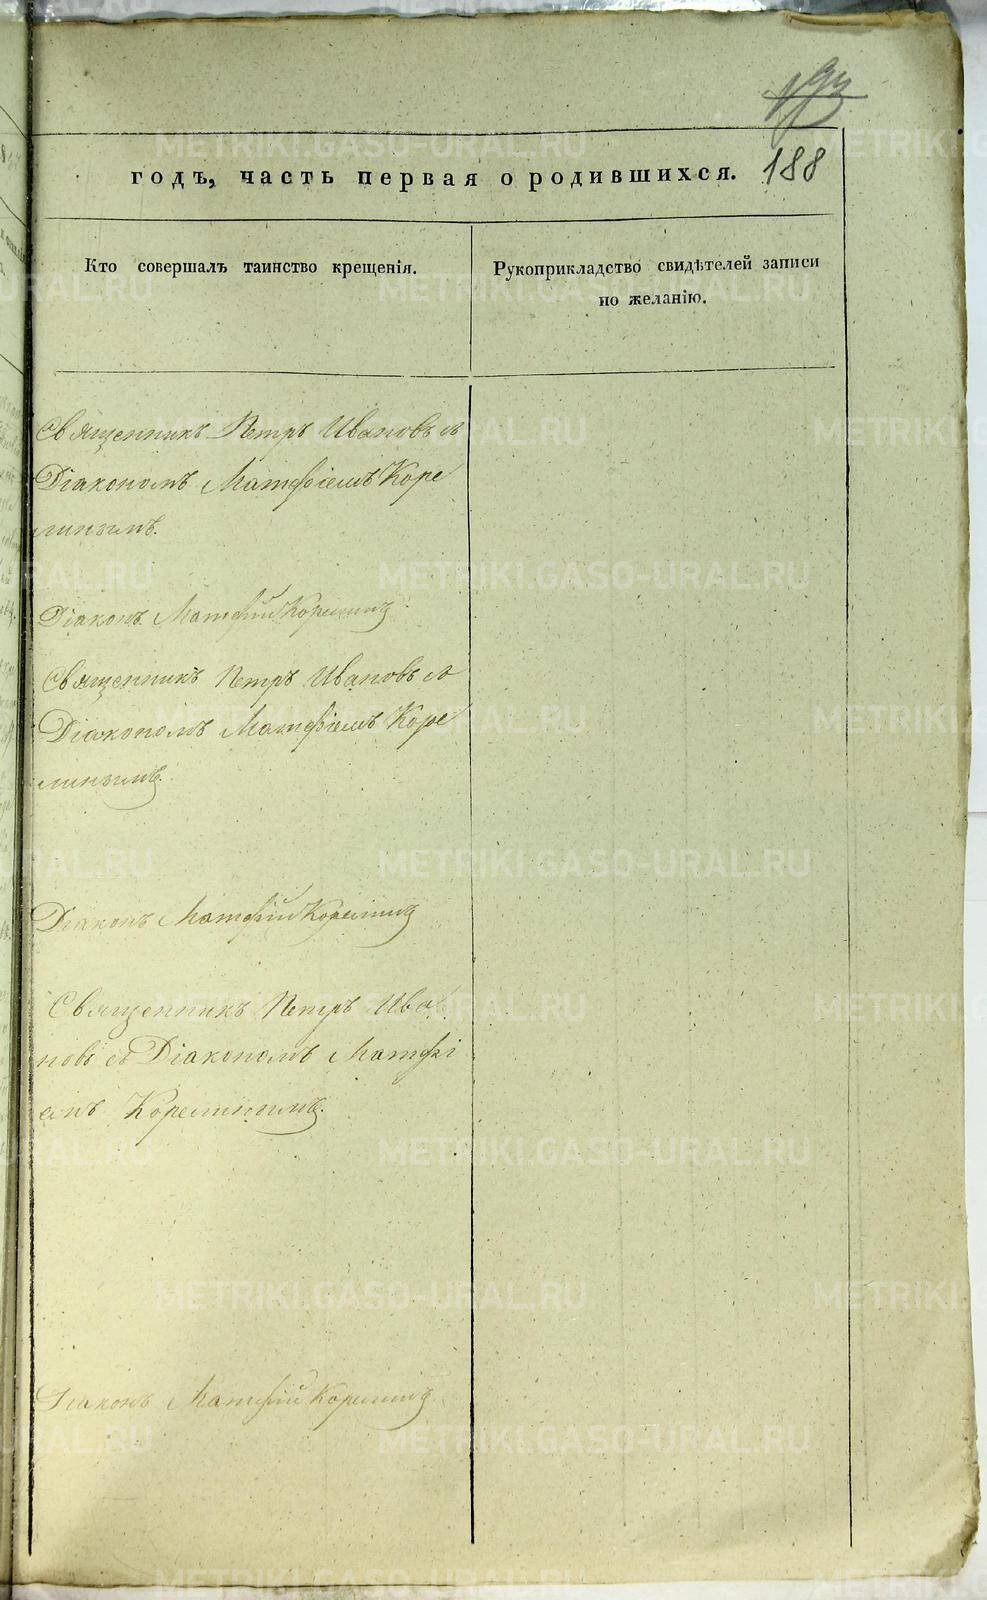 193
188
годъ, часть первая о родившихся.
Кто совершалъ таинство крещенія.
Рукоприкладство свидѣтелей записи
по желанію.
Священникъ Петръ Ивановъ съ
Діакономъ Матфіемъ Коре
линымъ.
Діаконъ Матфій Корелинъ
Священникъ Петръ Ивановъ съ
Діакономъ Матфіемъ Коре
линымъ.
Діаконъ Матфій Корелинъ
Священникъ Петръ Ива
новъ съ Діакономъ Матфі
емъ Корелинымъ.
Діаконъ Матфій Корелинъ
METRIKI.GASO-URAL.RU